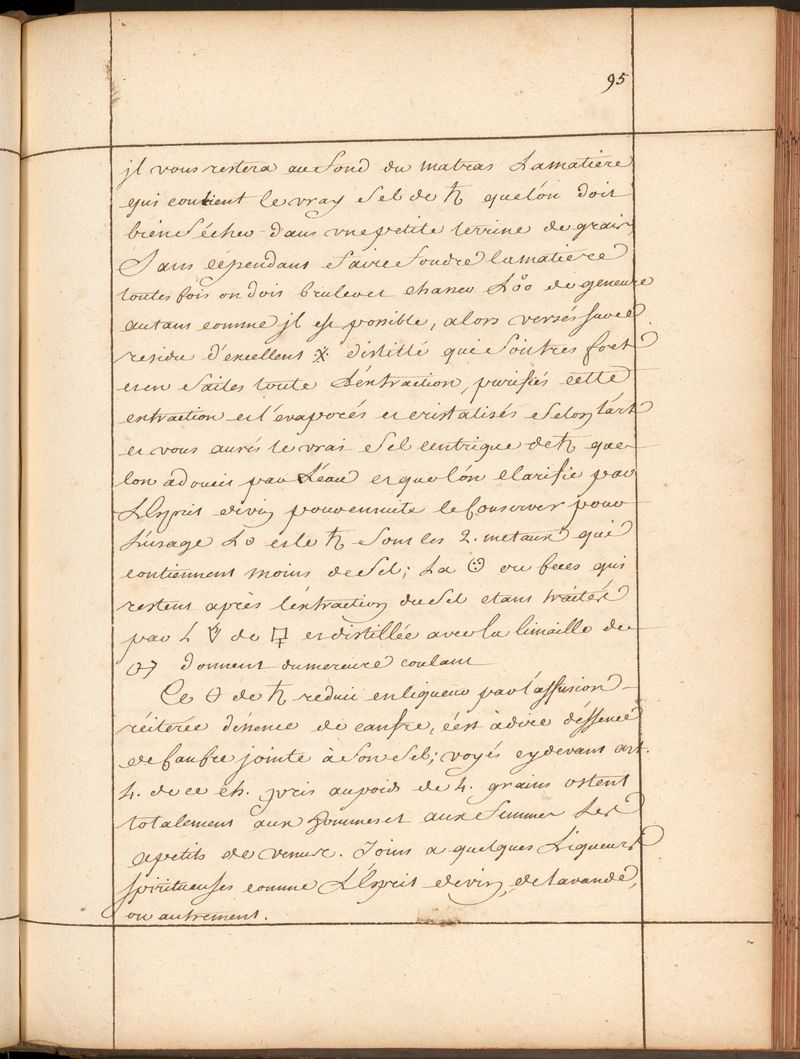 95
jl vous restera au fond du matras La matiere
qui contient le vray Sel de ♄ que lón doit
bién Sécher dans vne petite terrine de grais,
Sans cépendant faire fondre la matiere
toutes fois on doit bruler et chasser L'o°o de genevre
autant comme jl est possible, alors versés sur ce
residu d'excellent distillé qui Soit tres fort
et en faites toute L'éxtraction, purifiés cette
extraction et l'evaporés et cristalisés Selon l'art
et vous aurés le vrai Sel centrique de ♄ que
lon adoucit par L'éau et que lón clarifie par
L'Esprit de vin pour ensuite le Conserver pour
L'usage L et le ♄ sont les 2. metaux qui
contiennent moins de Sel; La ou feces qui
restent après l'éxtraction du Sel etant traitées
par L de et distillée avec la limaille de
♂ donnent du mercure coulant
Ce de ♄ reduit en liqueur par l'affusion
réiterée d'essence de canfre, c'ést à dire d'éssence
de Canfre jointe à Son Sel; voyés cy devant art.
4. de ce ch. pris au poids de 4. grains ostent
totalement aux hommes et aux femmes Les
apetits de venus. Joint a quelques Liqueurs
spiritueuses comme L'Esprit de vin, de lavande,
ou autrement.